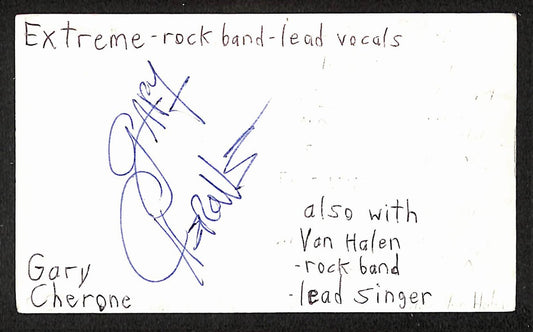 Extreme-rock band-lead vocals
GARY
also with
Van Halen
-rock band
-lead singer
Gary
Cherone